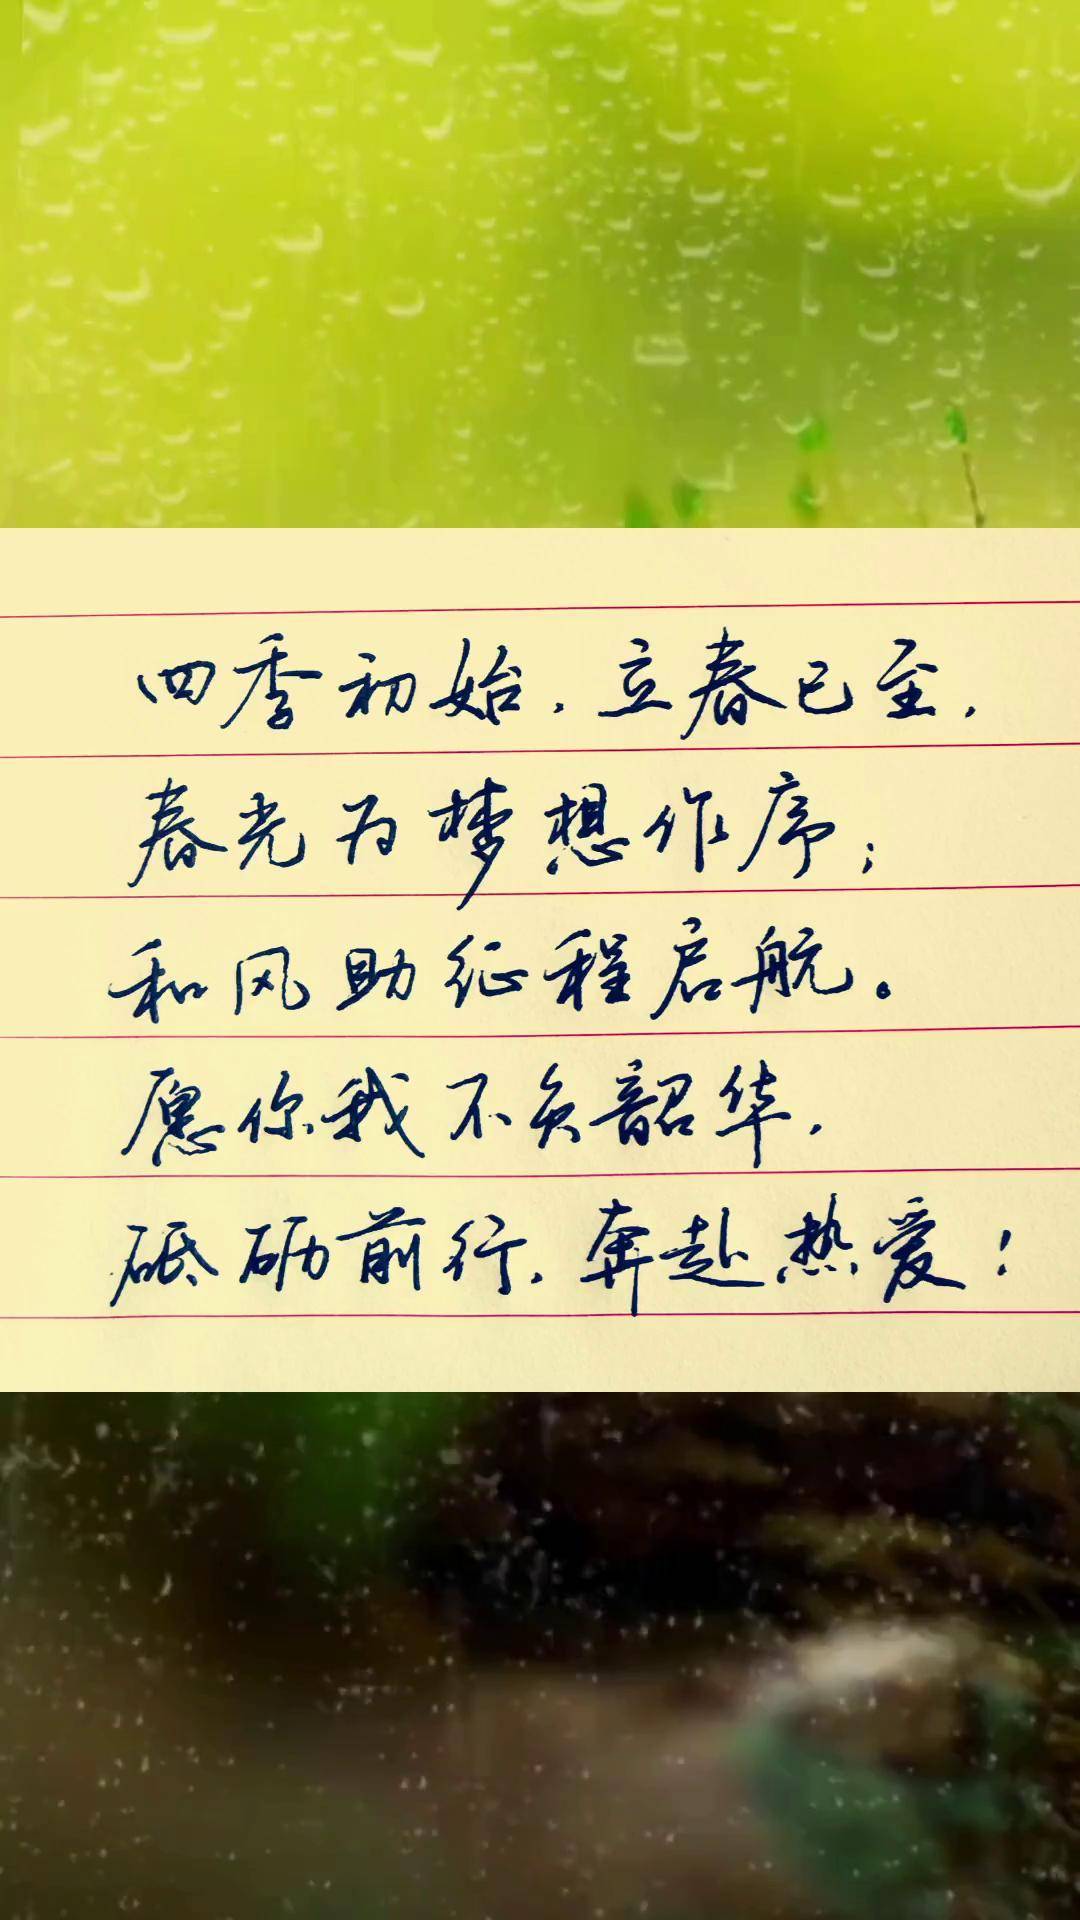 四季初始，立春已至，
春光为梦想作序；
和风助征程启航。
愿你我不负韶华，
砥砺前行，奔赴热爱！